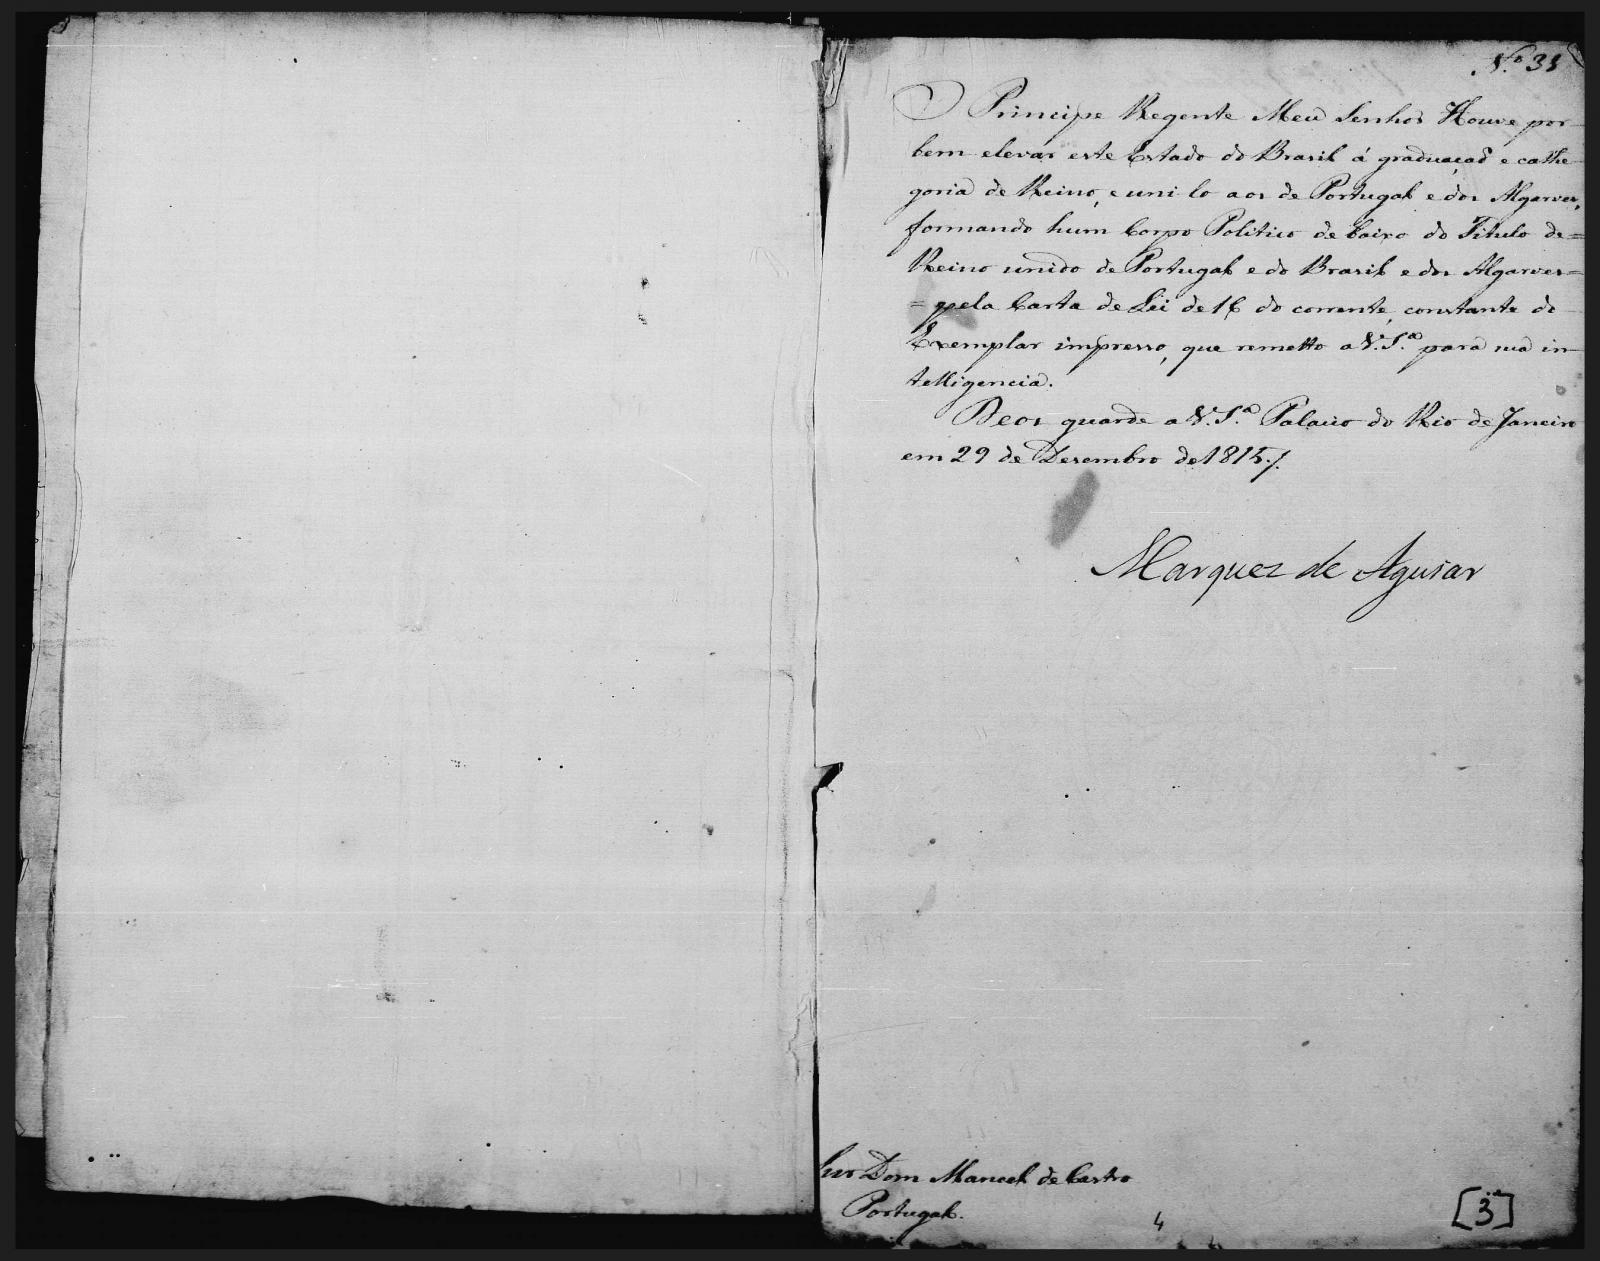 N.º 31
O Principe Regente Meu Senhor Houve por
bem elevar este Estado do Brasil á graduaçaõ e cathe-
goria de Reino, e uni-lo aos de Portugal e dos Algarves,
formando hum Corpo Politico de baixo do Titulo de =
Reino unido de Portugal e do Brasil e dos Algarves =
= pela Carta de Lei de 16 do corrente, constante do
Exemplar impresso, que remetto a V. S.ª para sua in-
telligencia.
Deos guarde a V. S.ª Palacio do Rio de Janeiro
em 29 de Dezembro de 1815./.
Marquez de Aguiar
Dom Manoel de Castro
Portugal.
4
[3]